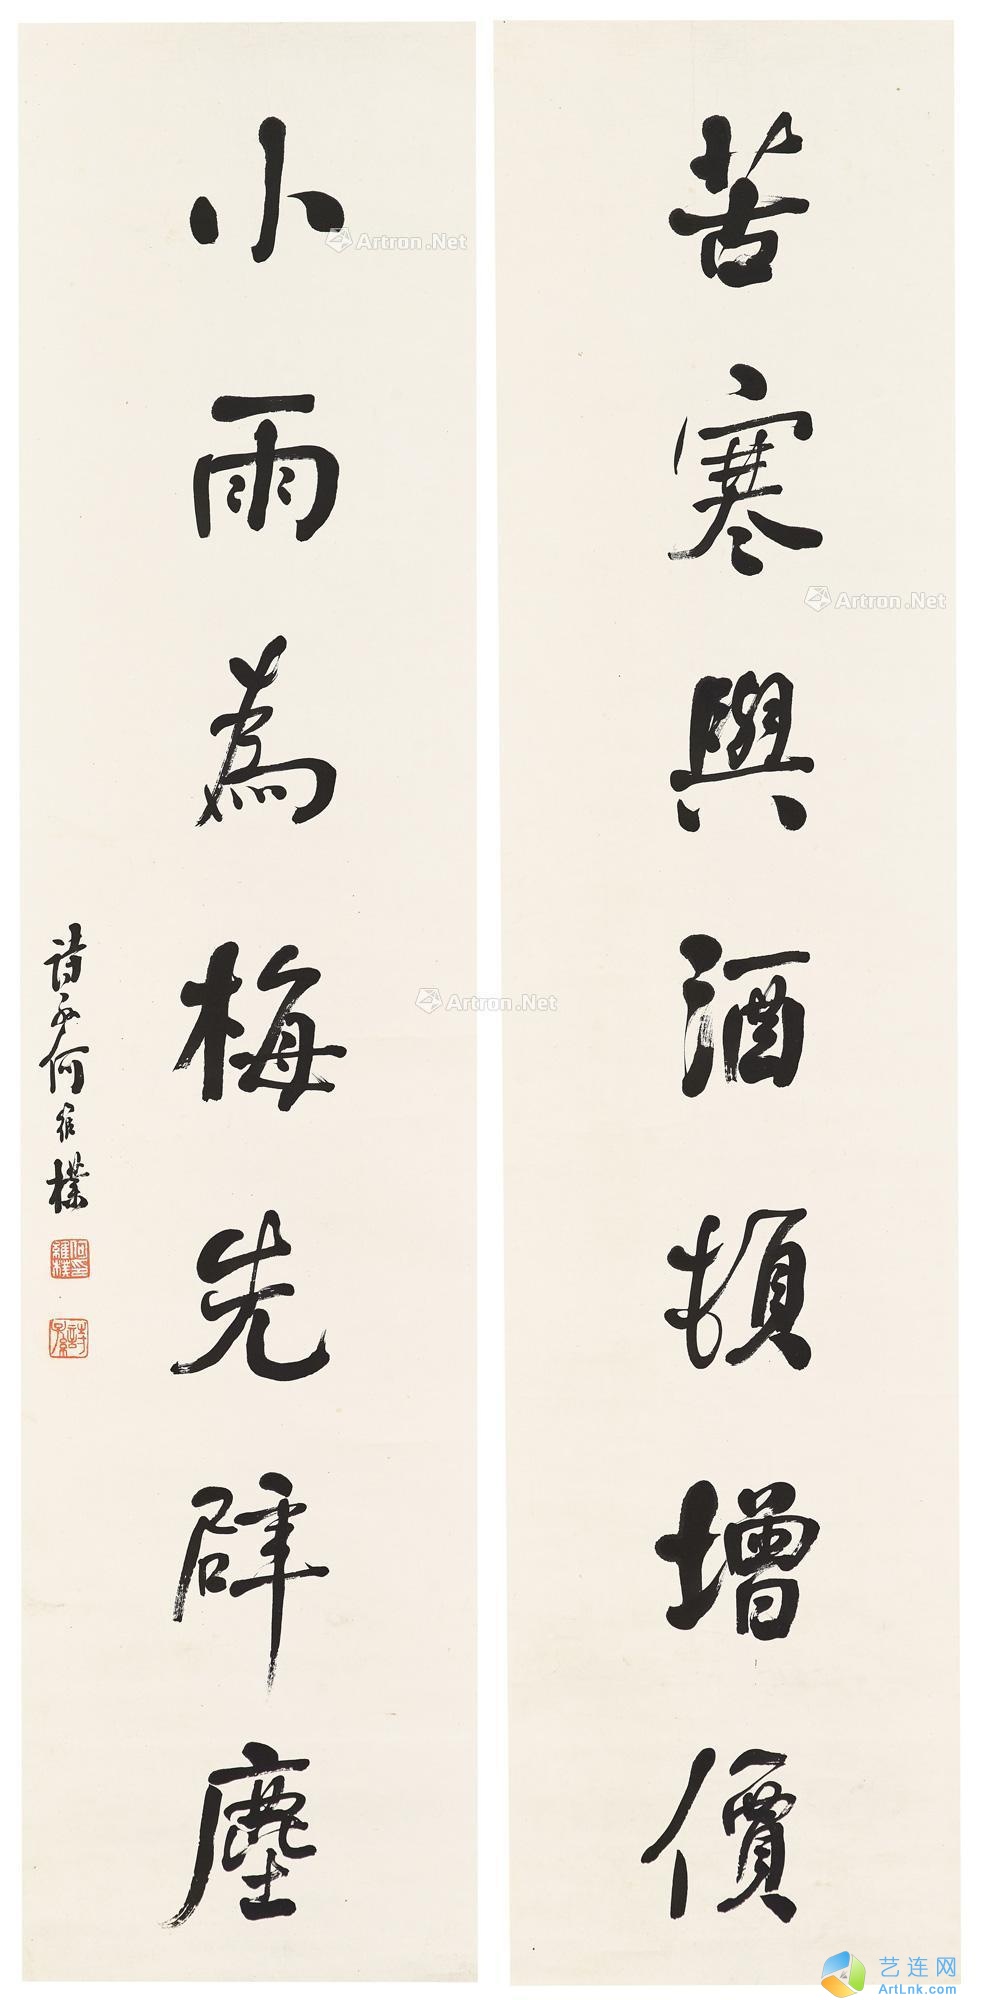 苦寒與酒頓增價
小雨為梅先辟塵
詩孫何維樸
何印維樸
詩孫
Artron.Net
Artron.Net
Artron.Net
艺连网
ArtLnk.com